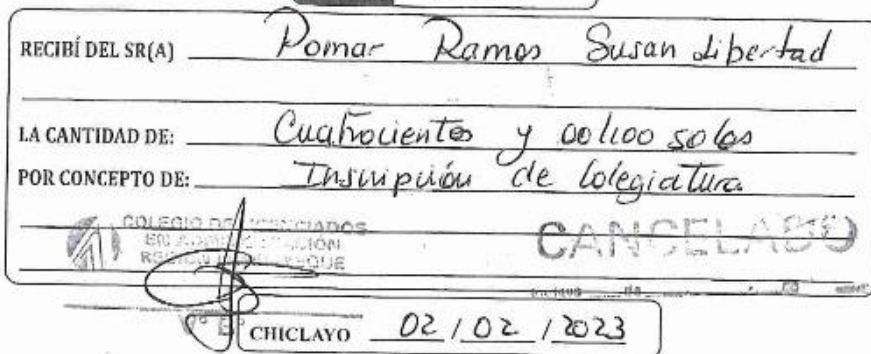 RECIBÍ DEL SR(A) Pomar Ramos Susan Libertad
LA CANTIDAD DE: Cuatrocientos y 00/100 soles
POR CONCEPTO DE: Inscripción de Colegiatura
COLEGIO DE LICENCIADOS
EN ADMINISTRACIÓN
REGIÓN LAMBAYEQUE
CANCELADO
CHICLAYO 02 / 02 / 2023